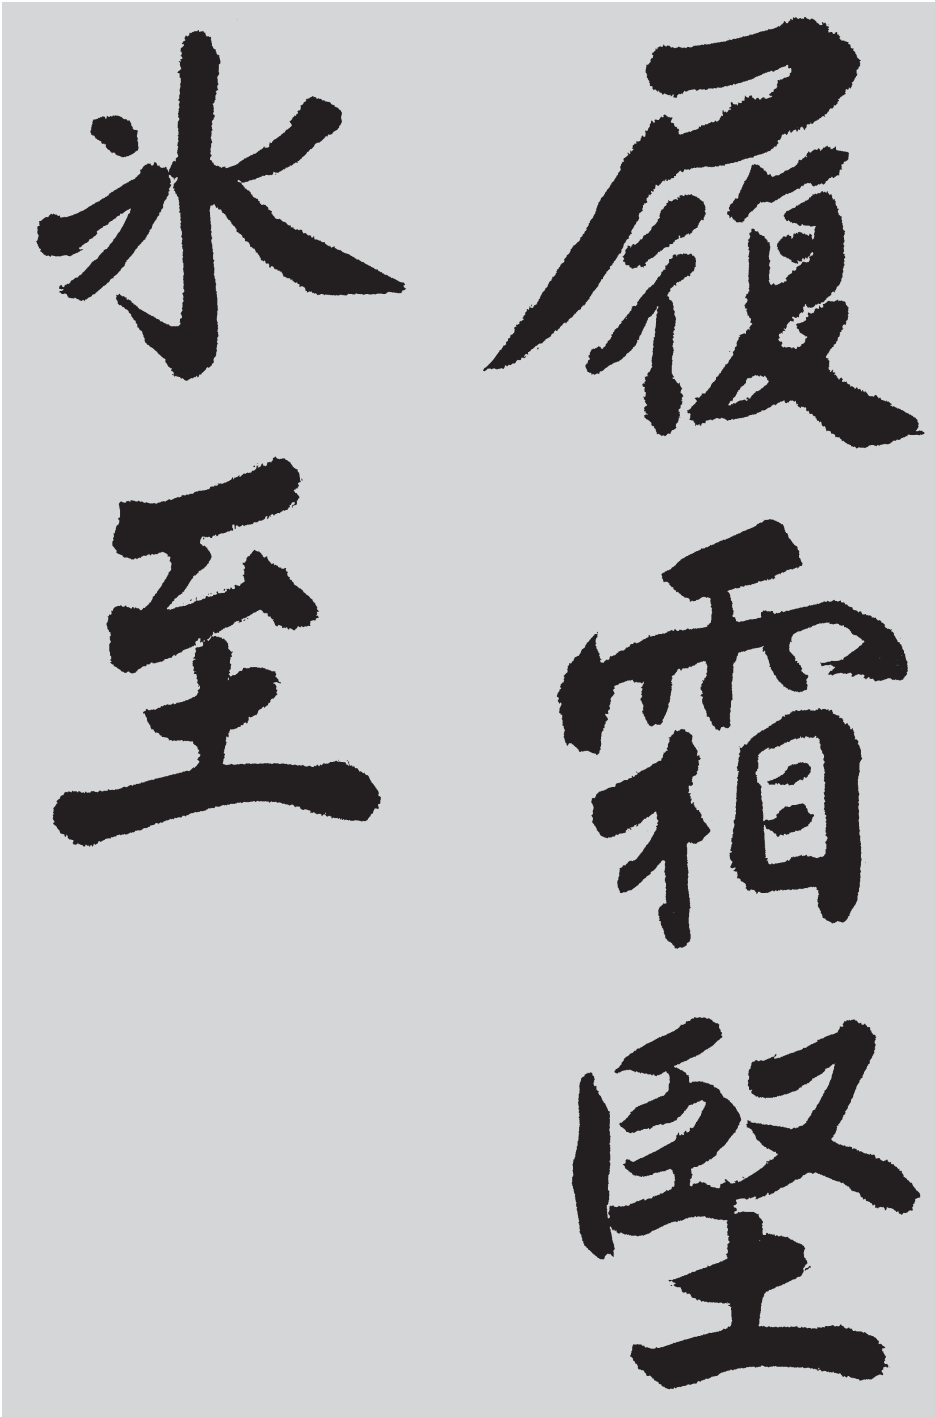 履霜堅
氷至